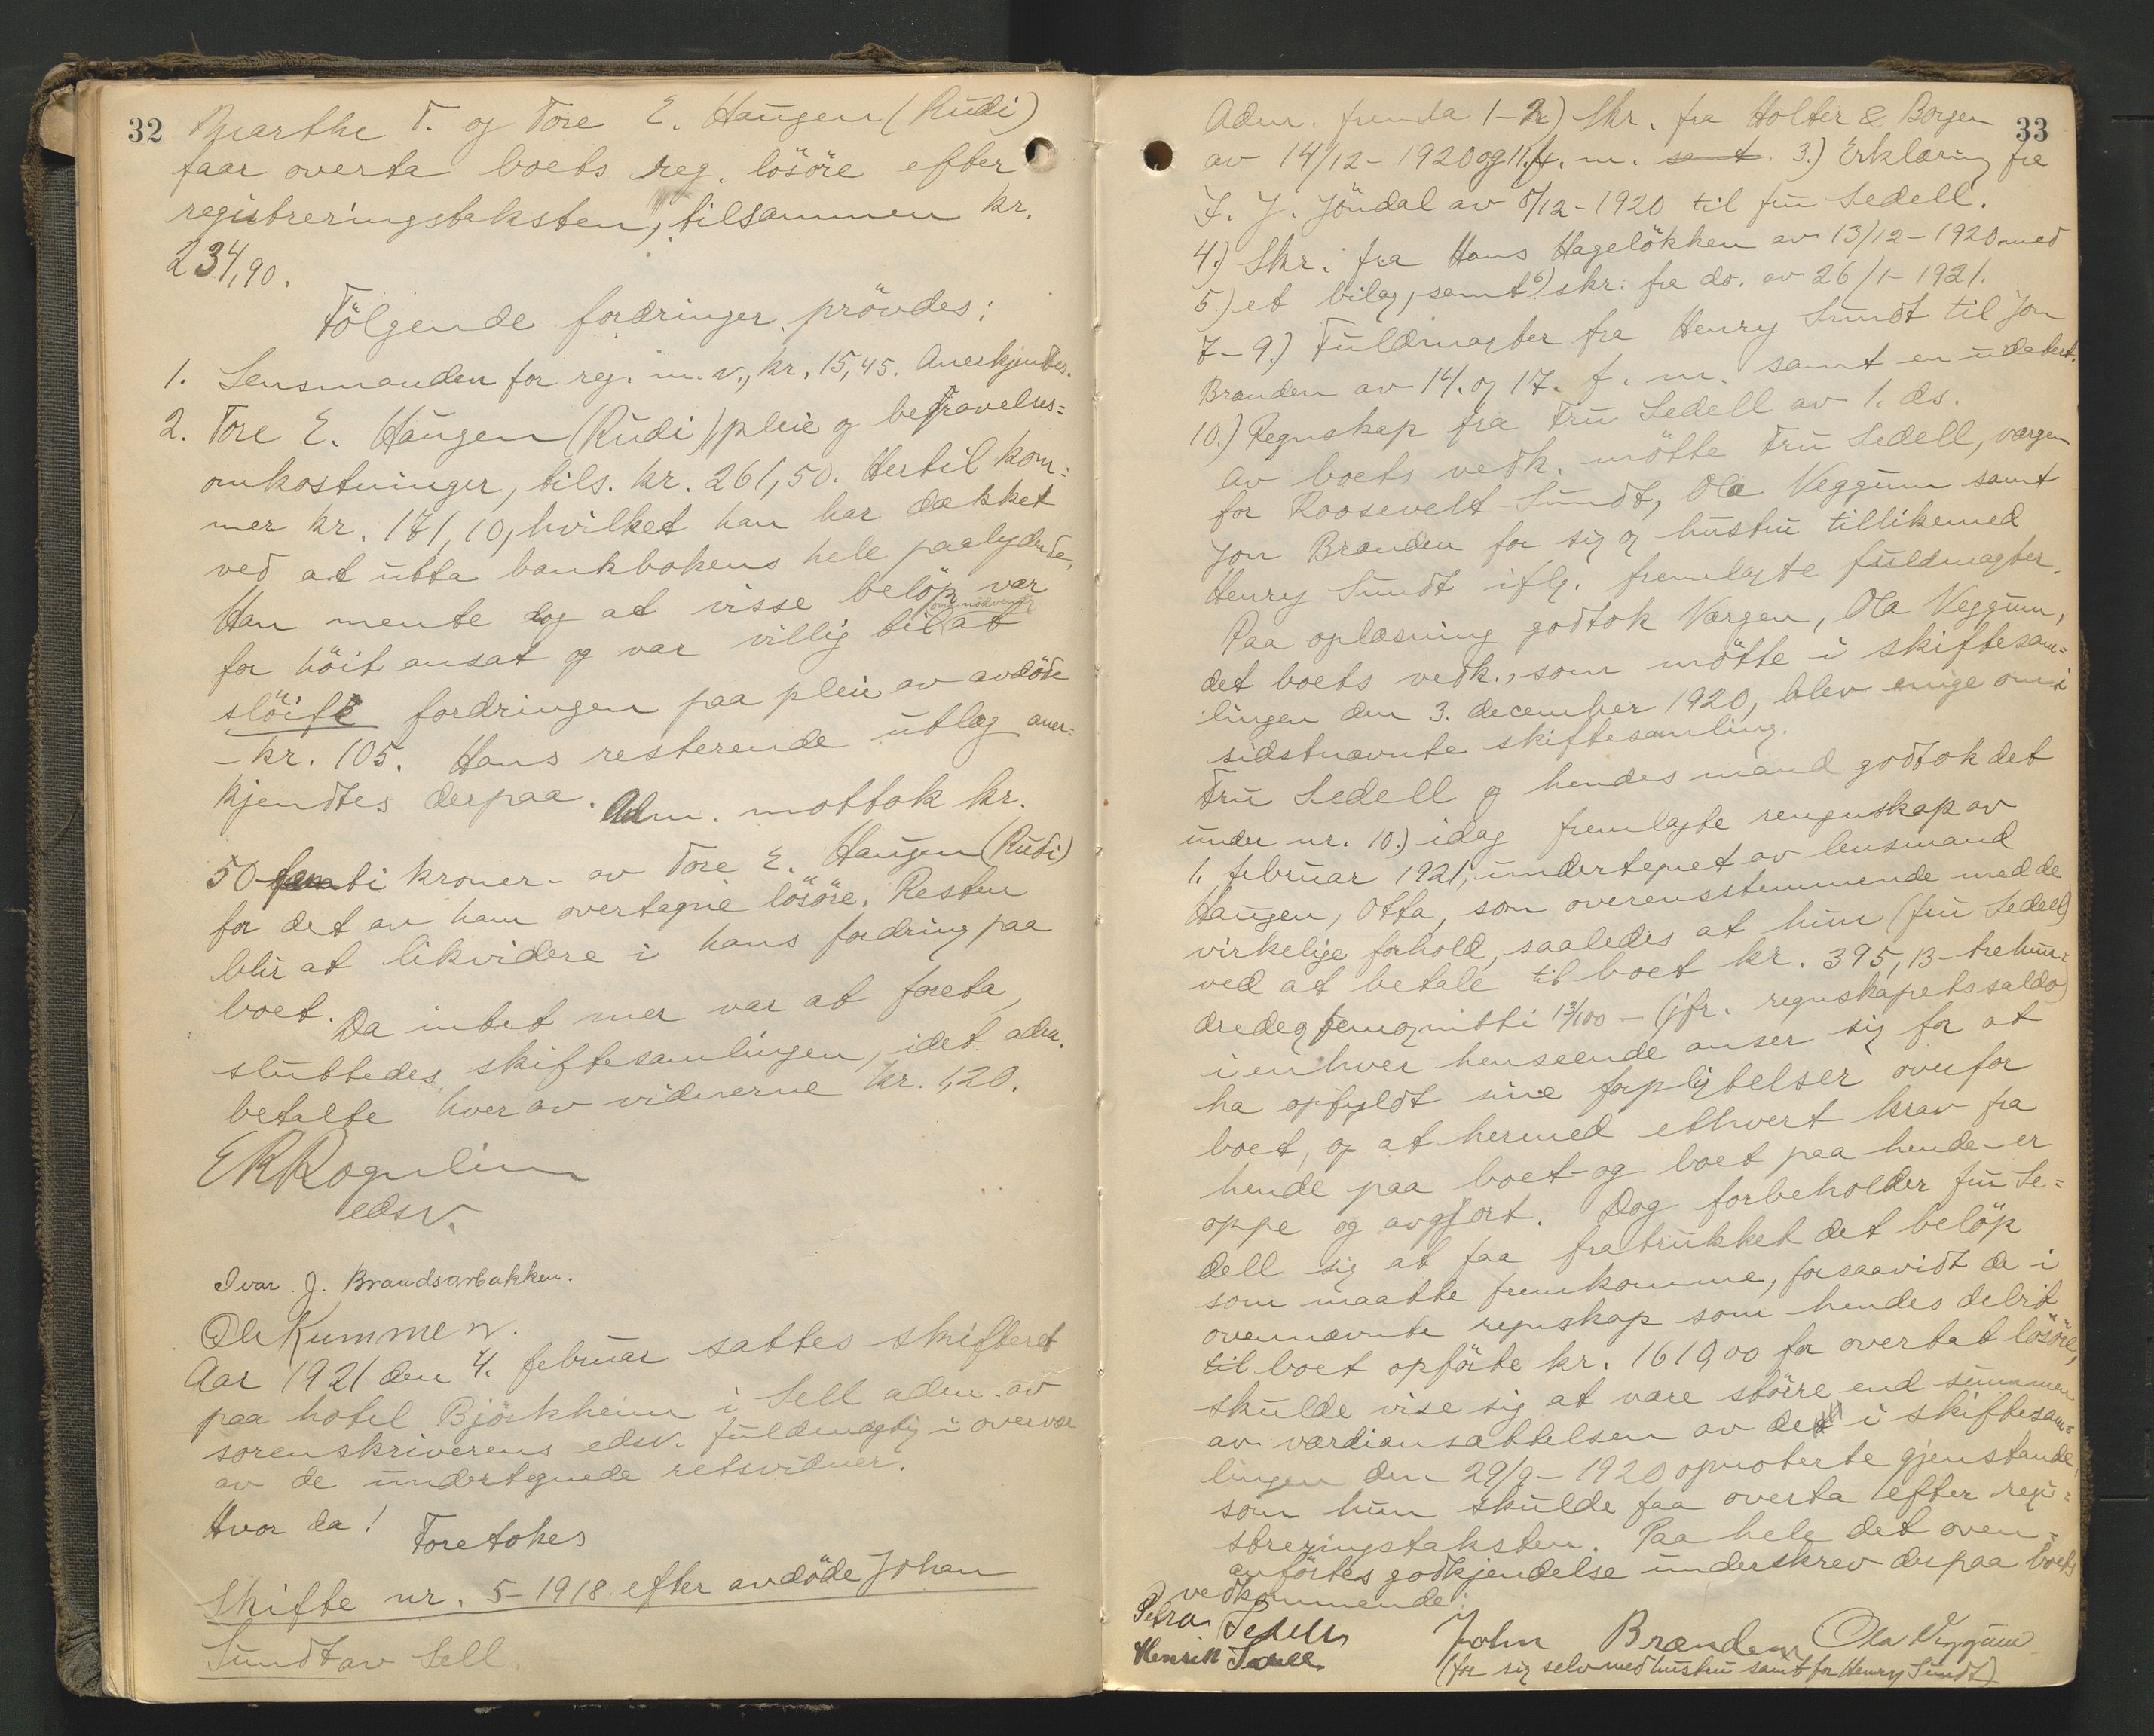 32
Marthe T. og Tore E. Haugen (Rudi)
faar overta boets reg. lösöre efter
registreringstaksten, tilsammen kr.
234,90.
Fölgende fordringer prövdes:
1. Lensmanden for reg. m. v., kr. 15,45. Anerkjendtes.
2. Tore E. Haugen (Rudi) pleie og begravelses=
omkostninger, tils. kr. 261,50. Hertil kom=
mer kr. 181,10, hvilket han har dækket
ved at utta bankbokens hele paalydende.
Han mente dog at visse belöp var
for höit ansat og var villig til (om nödvendig) at
slöife fordringen paa pleie av avdöde
- kr. 105. Hans resterende utlæg aner=
kjendtes derpaa. Adm. mottok kr.
50 - femti kroner - av Tore E. Haugen (Rudi)
for det av ham overtagne lösöre. Resten
blir at likvidere i hans fordring paa
boet.
Da intet mer var at foreta,
sluttedes skiftesamlingen, idet adm.
betalte hver av vidnerne kr. 1,20.
E R Rognlien
edsv.
Ivar J. Brandsarbakken.
Ole Rummen.
Aar 1921 den 4. februar sattes skifteret
paa hotel Björkheim i Sell adm. av
sorenskriverens edsv. fuldmægtig i overvær
av de undertegnede retsvidner.
Hvor da!
Foretokes
Skifte nr. 5 - 1918 efter avdöde Johan
Sundt av Sell.
33
Adm. fremla 1-2) Skr. fra Holter & Borgen
av 14/12-1920 og 11. f. m. samt. 3.) Erklæring fra
J. J. Jöndal av 8/12-1920 til fru Sedell.
4.) Skr. fra Hans Hagelökken av 13/12-1920 med
5.) et bilag, samt 6) skr. fra do. av 26/1-1921.
7-9.) Fuldmagter fra Henry Sundt til Jon
Brænden av 14. og 17. f. m. samt en udatert.
10.) Regnskap fra Fru Sedell av 1. ds.
Av boets vedk. mötte Fru Sedell, værgen
for Roosevelt Sundt, Ola Veggum samt
Jon Brænden for sig og hustru tillikemed
Henry Sundt iflg. fremlagte fuldmagter.
Paa oplæsning godtok Værgen, Ola Veggum,
det boets vedk., som mötte i skiftesam=
lingen den 3. december 1920, blev enige om i
sidstnævnte skiftesamling.
Fru Sedell og hendes mand godtok det
under nr. 10.) idag fremlagte rengnskap av
1. februar 1921, undertegnet av lensmand
Haugen, Otta, som overensstemmende med de
virkelige forhold, saaledes at hun (fru Sedell)
ved at betale til boet kr. 395,13 - trehun=
dredeogfemognitti 13/100 - (jfr. regnskapets saldo)
i enhver henseende anser sig for at
ha opfyldt sine forpligtelser overfor
boet, og at hermed ethvert krav fra
hende paa boet - og boet paa hende - er
oppe og avgjort. Dog forbeholder fru Se=
dell sig at faa fratrukket det belöp
som maatte fremkomme, forsaavidt de i
ovennævnte regnskap som hendes debit
til boet opförte kr. 1619,00 for overtat lösöre,
skulde vise sig at være större end summen
av værdiansættelsen av de i skiftesam=
lingen den 29/9-1920 opnoterte gjenstande,
som hun skulde faa overta efter regi=
streringstaksten. Paa hele det oven=
anförtes godkjendelse underskrev derpaa boets
vedkommende:
Petra Sedell
Henrik Sedell
John Brænden
Ola Veggum
(for sig selv med hustru samt for Henry Sundt)